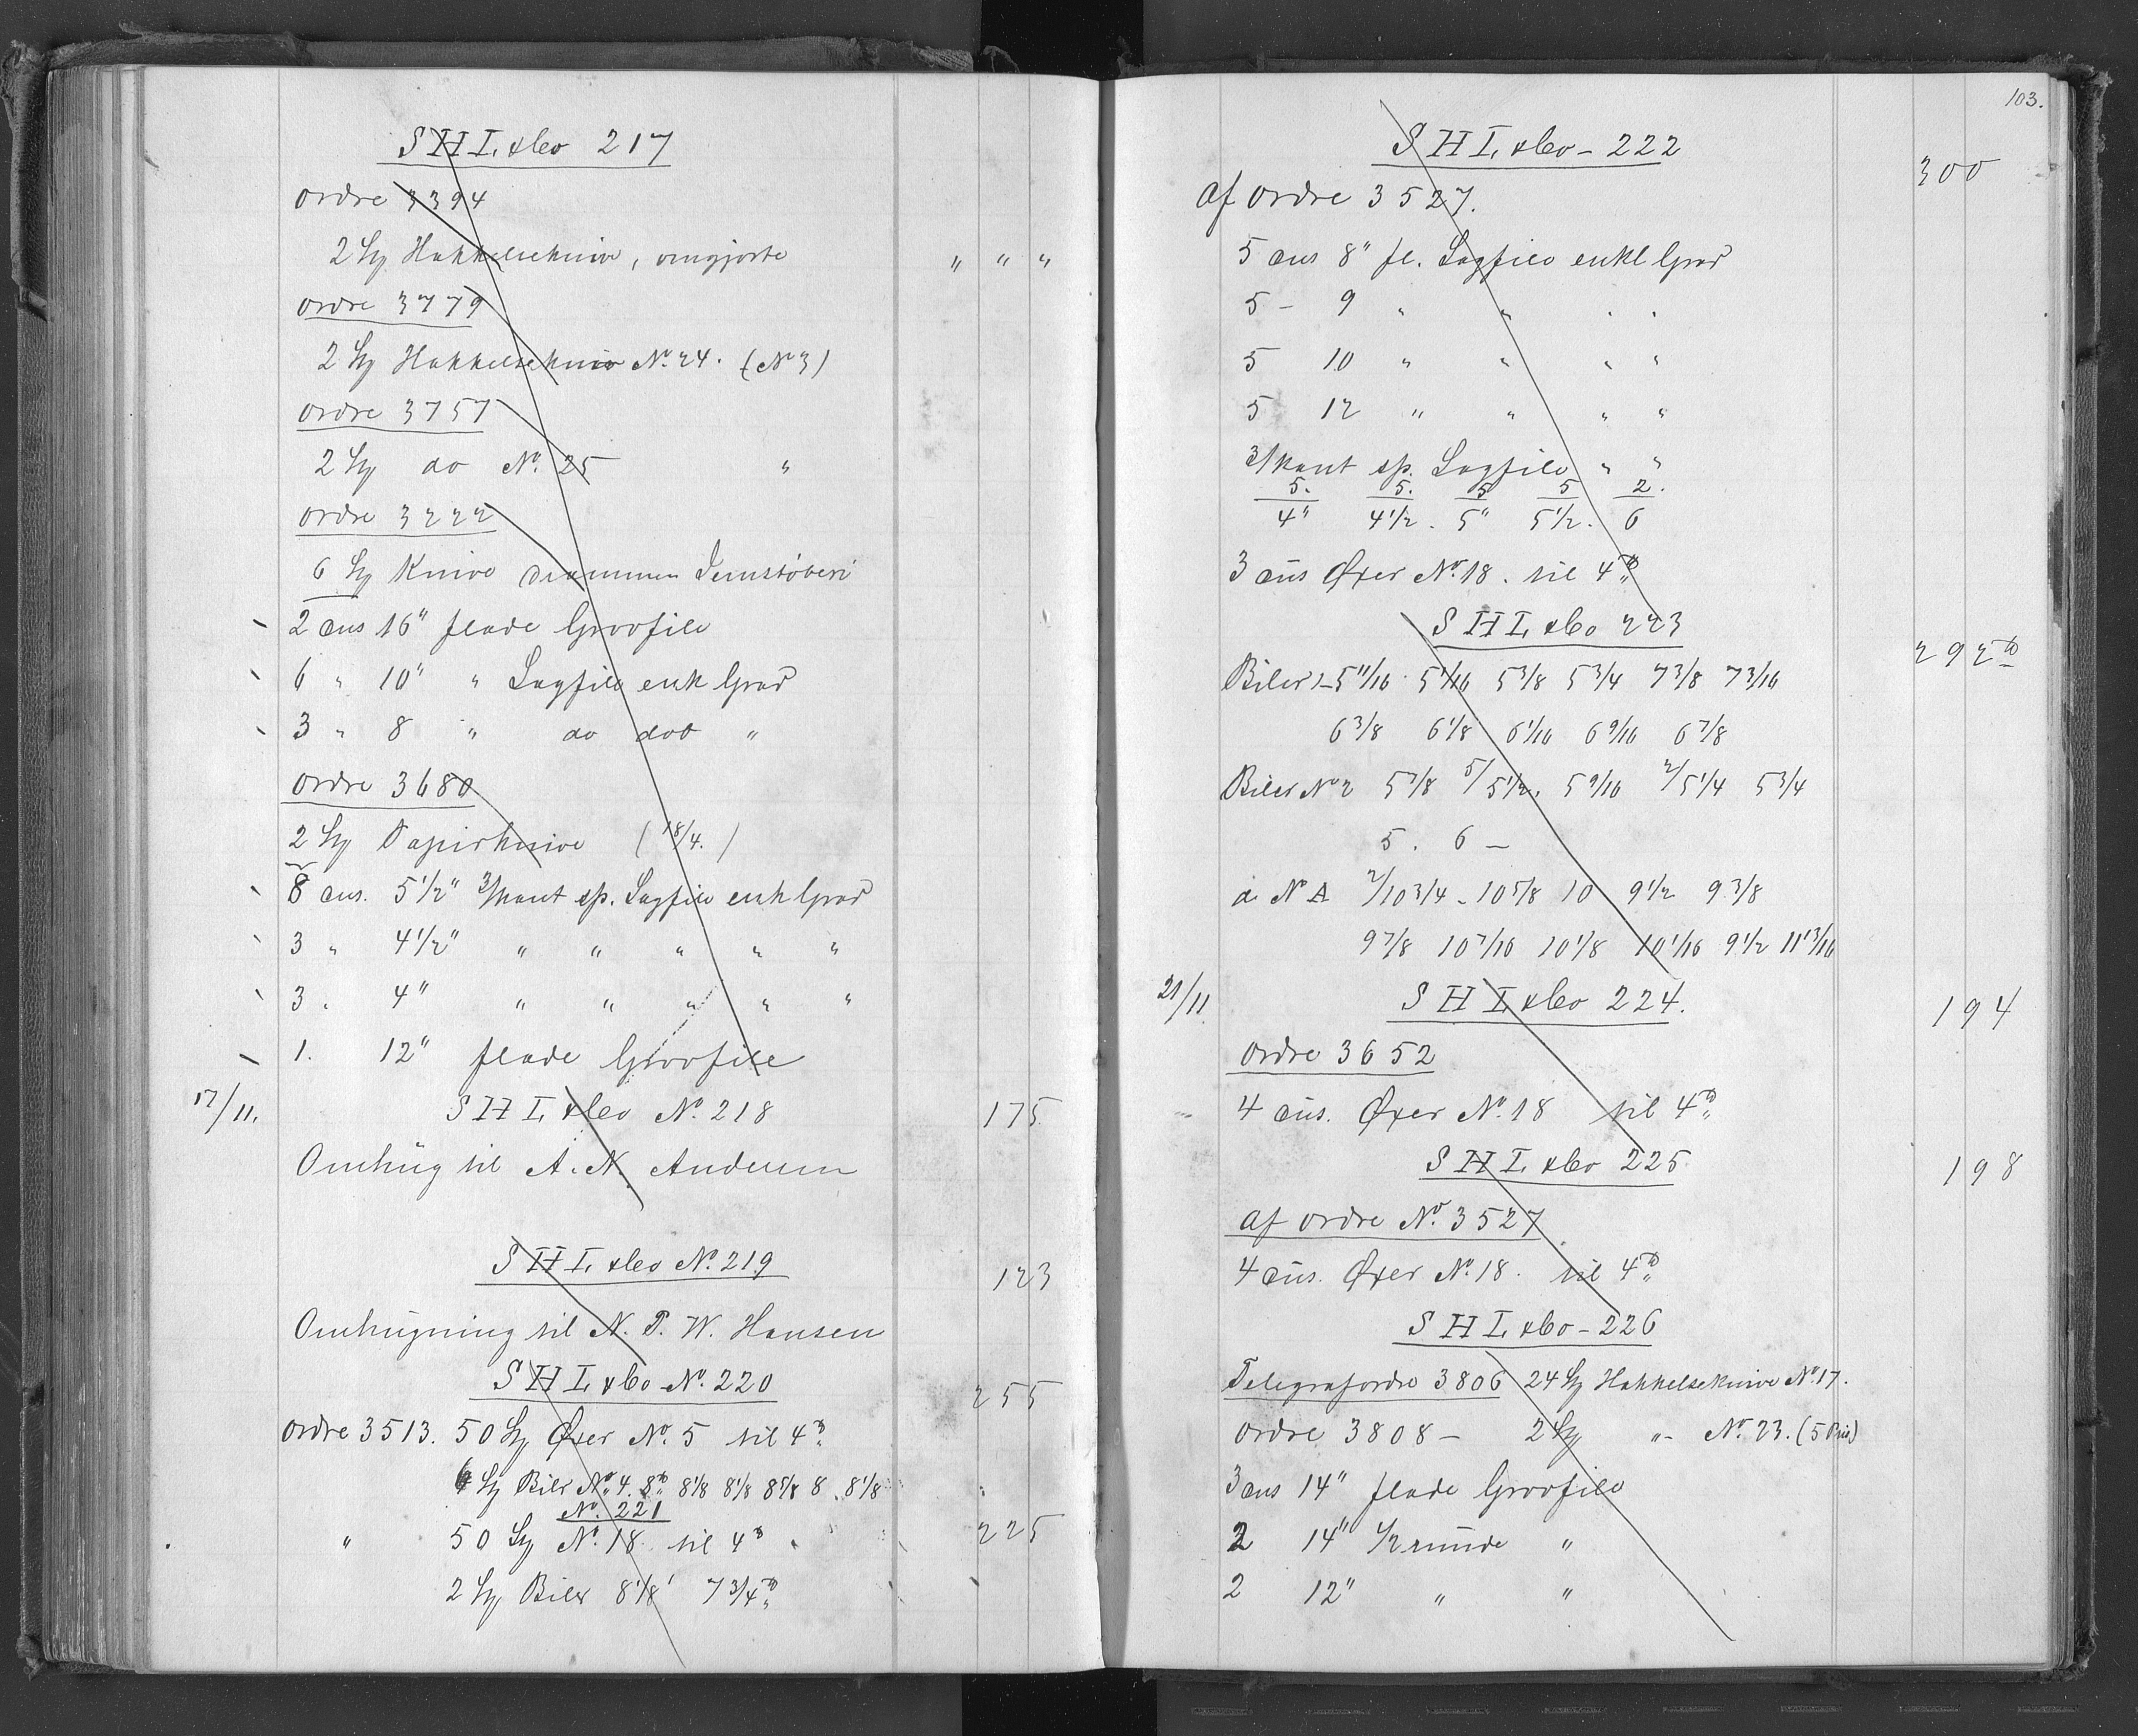 S H L & Co 217
Ordre 3394
2 Stk Hakkelseknive, omgjorte " " "
Ordre 3779
2 Stk Hakkelsekniv No. 24. (No 3)
Ordre 3757
2 Stk do No. 25 "
Ordre 3222
6 Stk Knive Drammen Jernstöberi
2 dus 16" flade Grovfile
6 " 10" " Sagfile enk Grad
3 " 8 " do dob "
Ordre 3680
2 Stk Papirknive (18/4.)
8 dus. 5 1/2" 3/kant sp. Sagfile enk Grad
3 " 4 1/2" " " " " "
3 " 4" " " " " "
1. 12" flade Grovfile
17/11. S H L & Co No. 218 175
Omhug til A. N. Andersen
S H L & Co No. 219 123
Omhugning til N. P. W. Hansen
S H L & Co - No. 220 255
Ordre 3513. 50 Stk Öxer No. 5 til 4 tb
6 Stk Biler No. 4. 8 tb 8 1/8 8 1/8 8 5/8 8 8 1/8
No. 221 225
" 50 Stk No. 18 til 4 tb
2 Stk Biler 8 1/8 7 3/4 tb
103.
S H L & Co - 222 300
Af Ordre 3527.
5 dus 8" fl. Sagfile enkl Grad
5 - 9 " " " "
5 10 " " " "
5 12 " " " "
3/kant sp. Sagfile " "
5. 5. 5 5 2.
4" 4 1/2. 5" 5 1/2. 6
3 dus Öxer No. 18. til 4 tb
S H L & Co 223 292 tb
Biler 1 - 5 11/16 5 1/16 5 3/8 5 3/4 7 3/8 7 3/16
6 3/8 6 1/8 6 1/16 6 9/16 6 7/8
Biler No 2 5 7/8 5/5 1/2. 5 9/16 2/5 1/4 5 3/4
5. 6 -
d. No A 2/10 3/4 - 10 5/8 10 9 1/2 9 3/8
9 7/8 10 7/16 10 1/8 10 1/16 9 1/2 11 13/16
21/11. S H L & Co 224. 194
Ordre 3652
4 dus. Öxer No. 18 til 4 tb
S H L & Co 225 198
Af Ordre No. 3527
4 dus. Öxer No. 18. til 4 tb
S H L & Co - 226
Telegrafordre 3806 24 Stk Hakkelseknive No. 17.
Ordre 3808 - 2 Stk " - No. 23.
3 dus 14" flade Grovfile
2 14" 1/2 runde "
2 12" " "